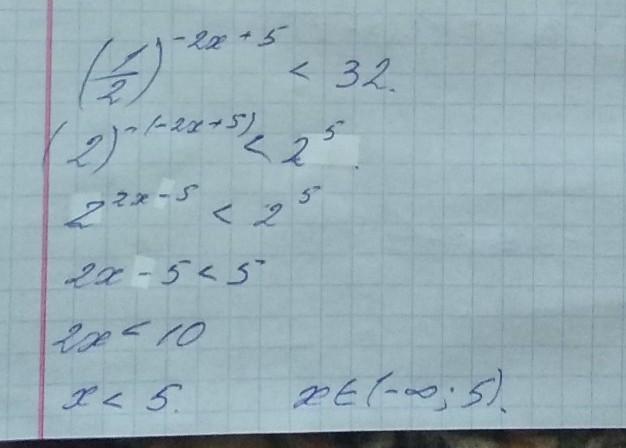 (1/2)^(-2x+5) < 32.
(2)^(-(-2x+5)) < 2^5.
2^(2x-5) < 2^5
2x-5<5
2x<10
x < 5. x∈(-∞; 5).